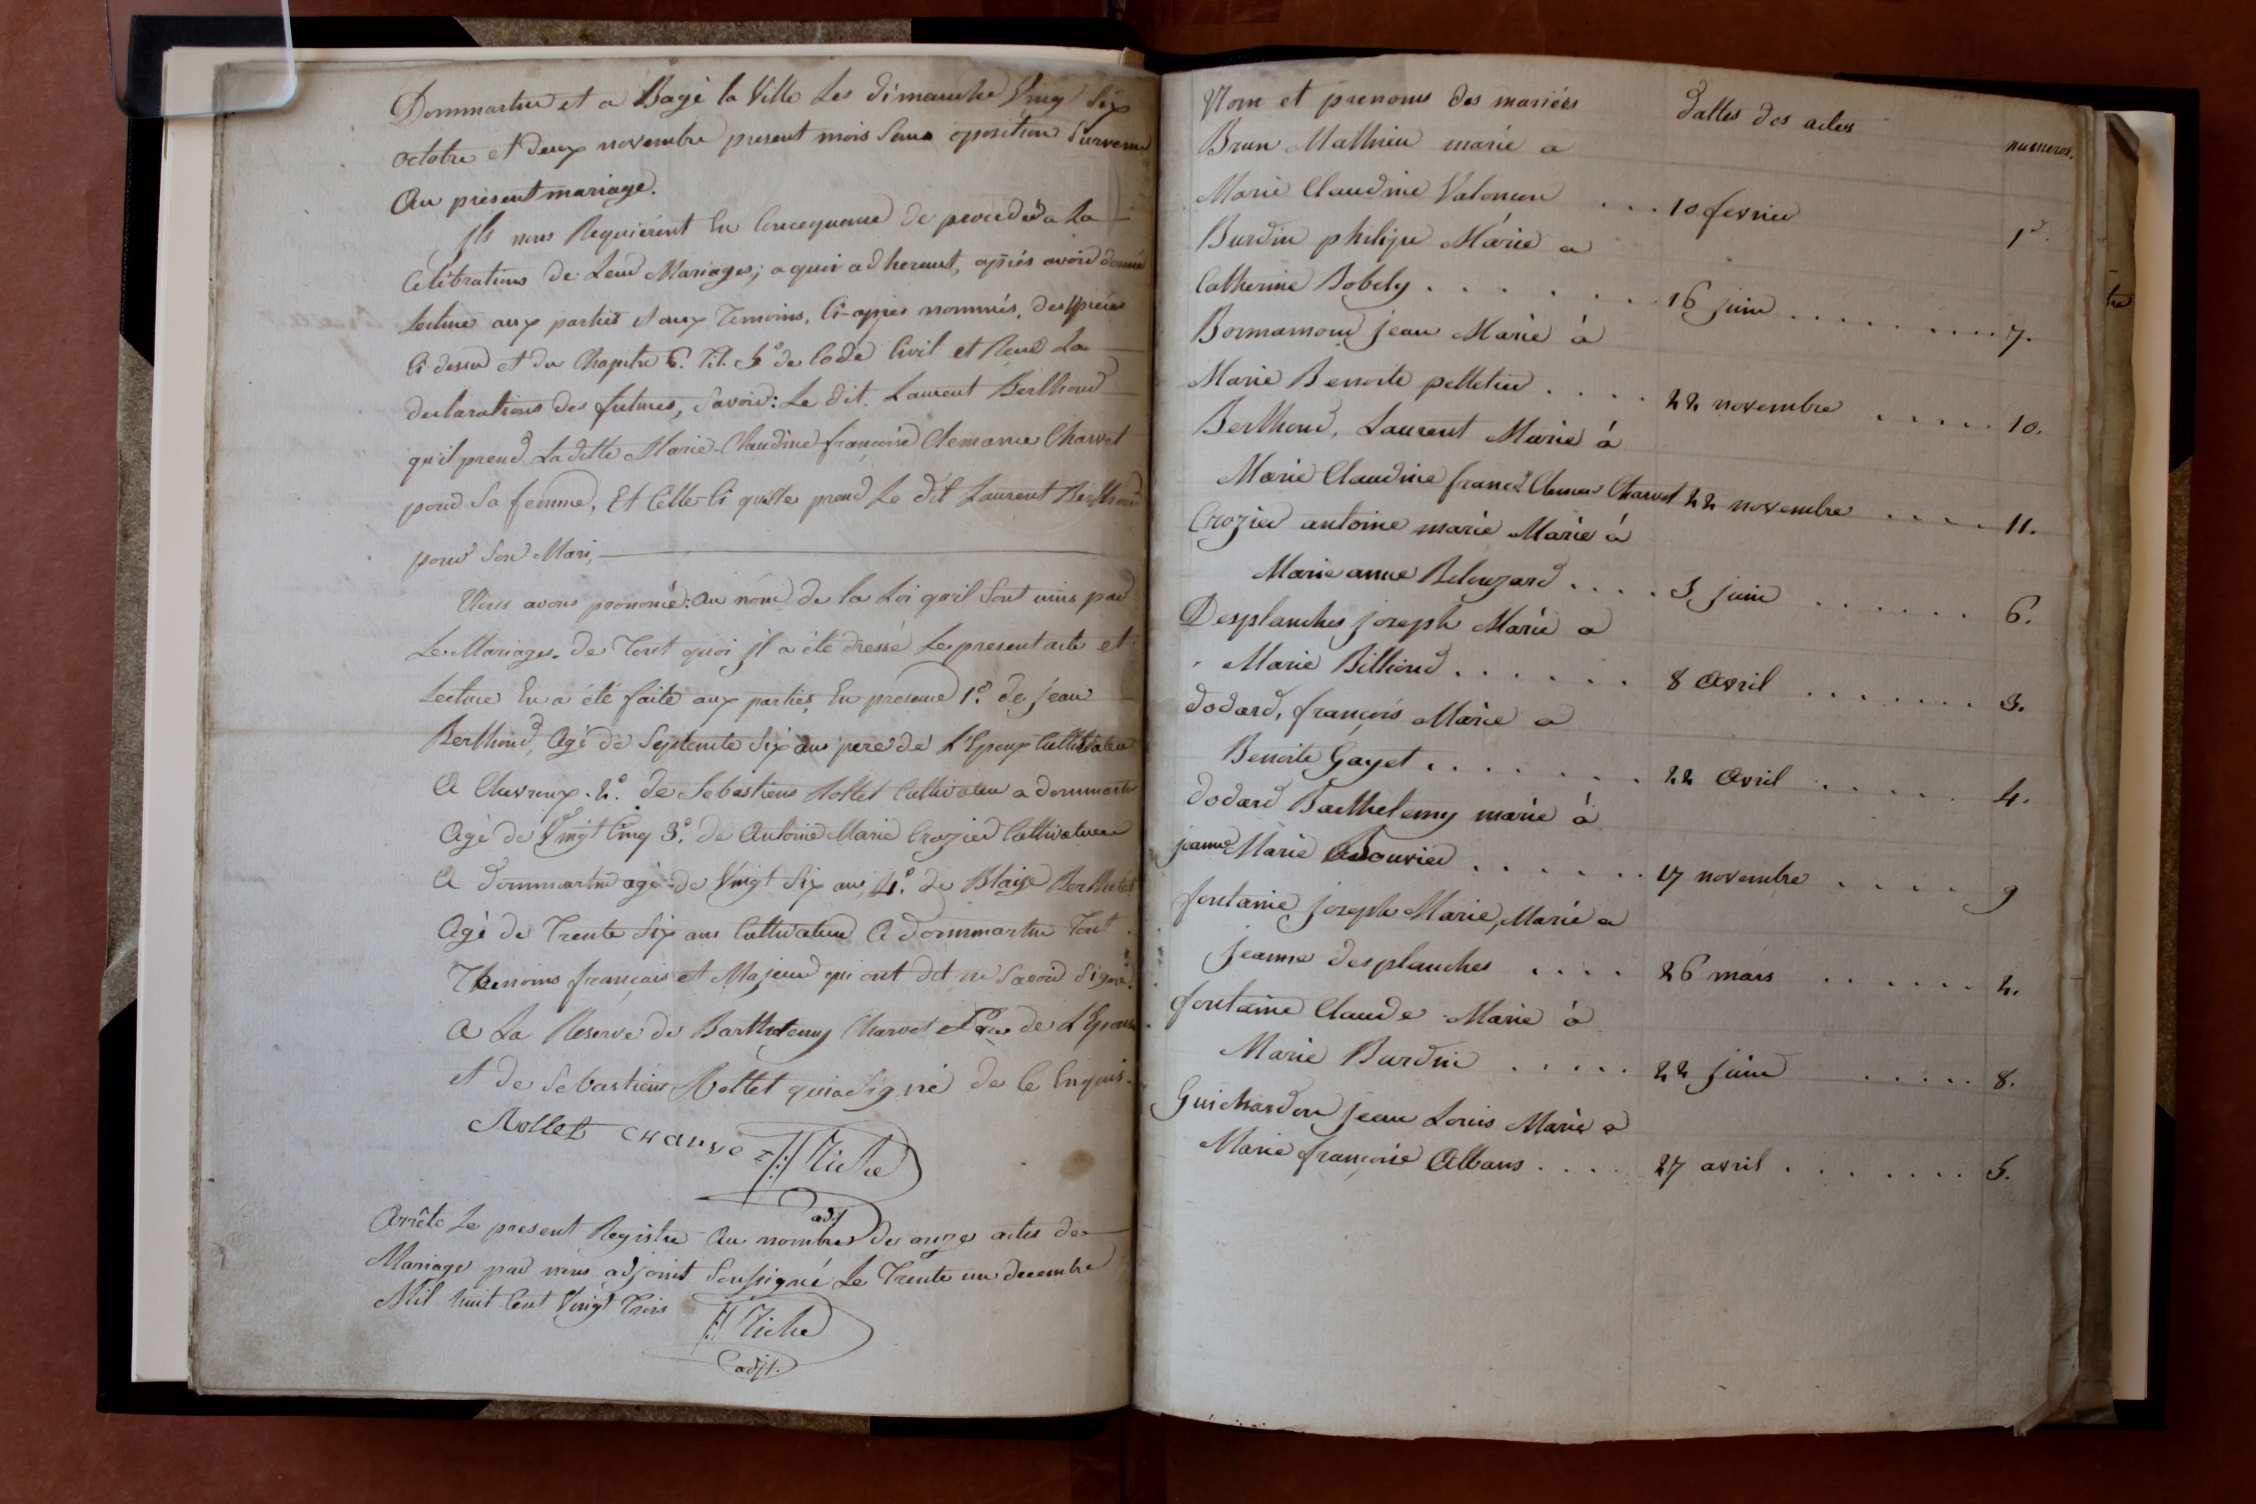 Dommartin et a Bagé la Ville Les dimanche Vingt Six
octobre et deux novembre present mois Sans oposition Survenue
Au present mariage.
Ils nous Requierent En Consequence de proceder a La
Célébration de Leur Mariage; a quoi adherant, après avoir donné
Lecture aux parties et aux Temoins, Ci-après nommés, des pieces
Ci dessus et du Chapitre 6. Tit. 5e de Code Civil et Recu La
declarations des futures, Savoir: Le dit Laurent Berthoud
qu'il prend La ditte Marie-Claudine françoise Clemance Charvet
pour Sa femme, Et Celle Ci qu'elle prend Le dit Laurent Berthoud
pour Son Mari,
Nous avons prononcé: au nom de la Loi qu'il Sont unis par
Le Mariage. de Tout quoi jl a été dressé Le present acte et
Lecture En a été faite aux parties En presence 1.° de jean
Berthoud, Agé de Septente Six ans pere de L'Epoux Cultivateur
A Chevroux. 2.° de Sebastiens Mollet Cultivateur a dommartin
Agé de Vingt Cinq 3.° de Antoine Marie Crozier Cultivateur
A dommartin agé de Vingt Six ans, 4.° de Blaise Berthelet
Agé de Trente Six ans Cultivateur A dommartin Tout
Themoins français et Majeur qui ont dit ne Savoir Signé.
A La Reserve de Barthelemy Charvet Pere de L'Epouse
et de Sebastiens Mollet qui a Signé de Ce Enquis.
Mollet CHarvet Tiche
adj
Arrêté Le present Registre Au nombre de onze actes de
Mariage par nous adjoint Soussigné Le Trente un decembre
Mil huit Cent Vingt Trois
Tiche
adjt.
Nom et prenoms des mariées dattes des actes numeros.
Brun Mathieu marié a
Marie Claudine Valonem . . . 10 fevrier 1er
Burdin philipe Marié a
Catherine Bobely . . . . . . . 16 juin . . . . . . . . . 7.
Bonnamour jean Marié à
Marie Benoite pelletier . . . . 22 novembre . . . . . 10.
Berthoud, Laurent Marié à
Marie Claudine franç.e Clemce Charvet 22 novembre . . . . 11.
Crozier antoine marie Marié à
Marie anne Belouzard . . . . 5 juin . . . . . . 6.
Desplanches joseph Marié a
Marie Bilhoud . . . . . . 8 Avril . . . . . . . 3.
dodard, françois Marié a
Benoite Gayet . . . . . . . 22 Avril . . . . . 4.
dodard Barthelemy marié à
jeanne Marie Bouvier . . . . . . 17 novembre . . . . 9
fontaine joseph Marie, Marié a
jeanne desplanches . . . . 26 mars . . . . . . 2.
fontaine Claude Marié à
Marie Burdin . . . . . 22 juin . . . . . 8.
Guichardon jean Louis Marié a
Marie françoise Albans . . . . 27 avril . . . . . . . 5.